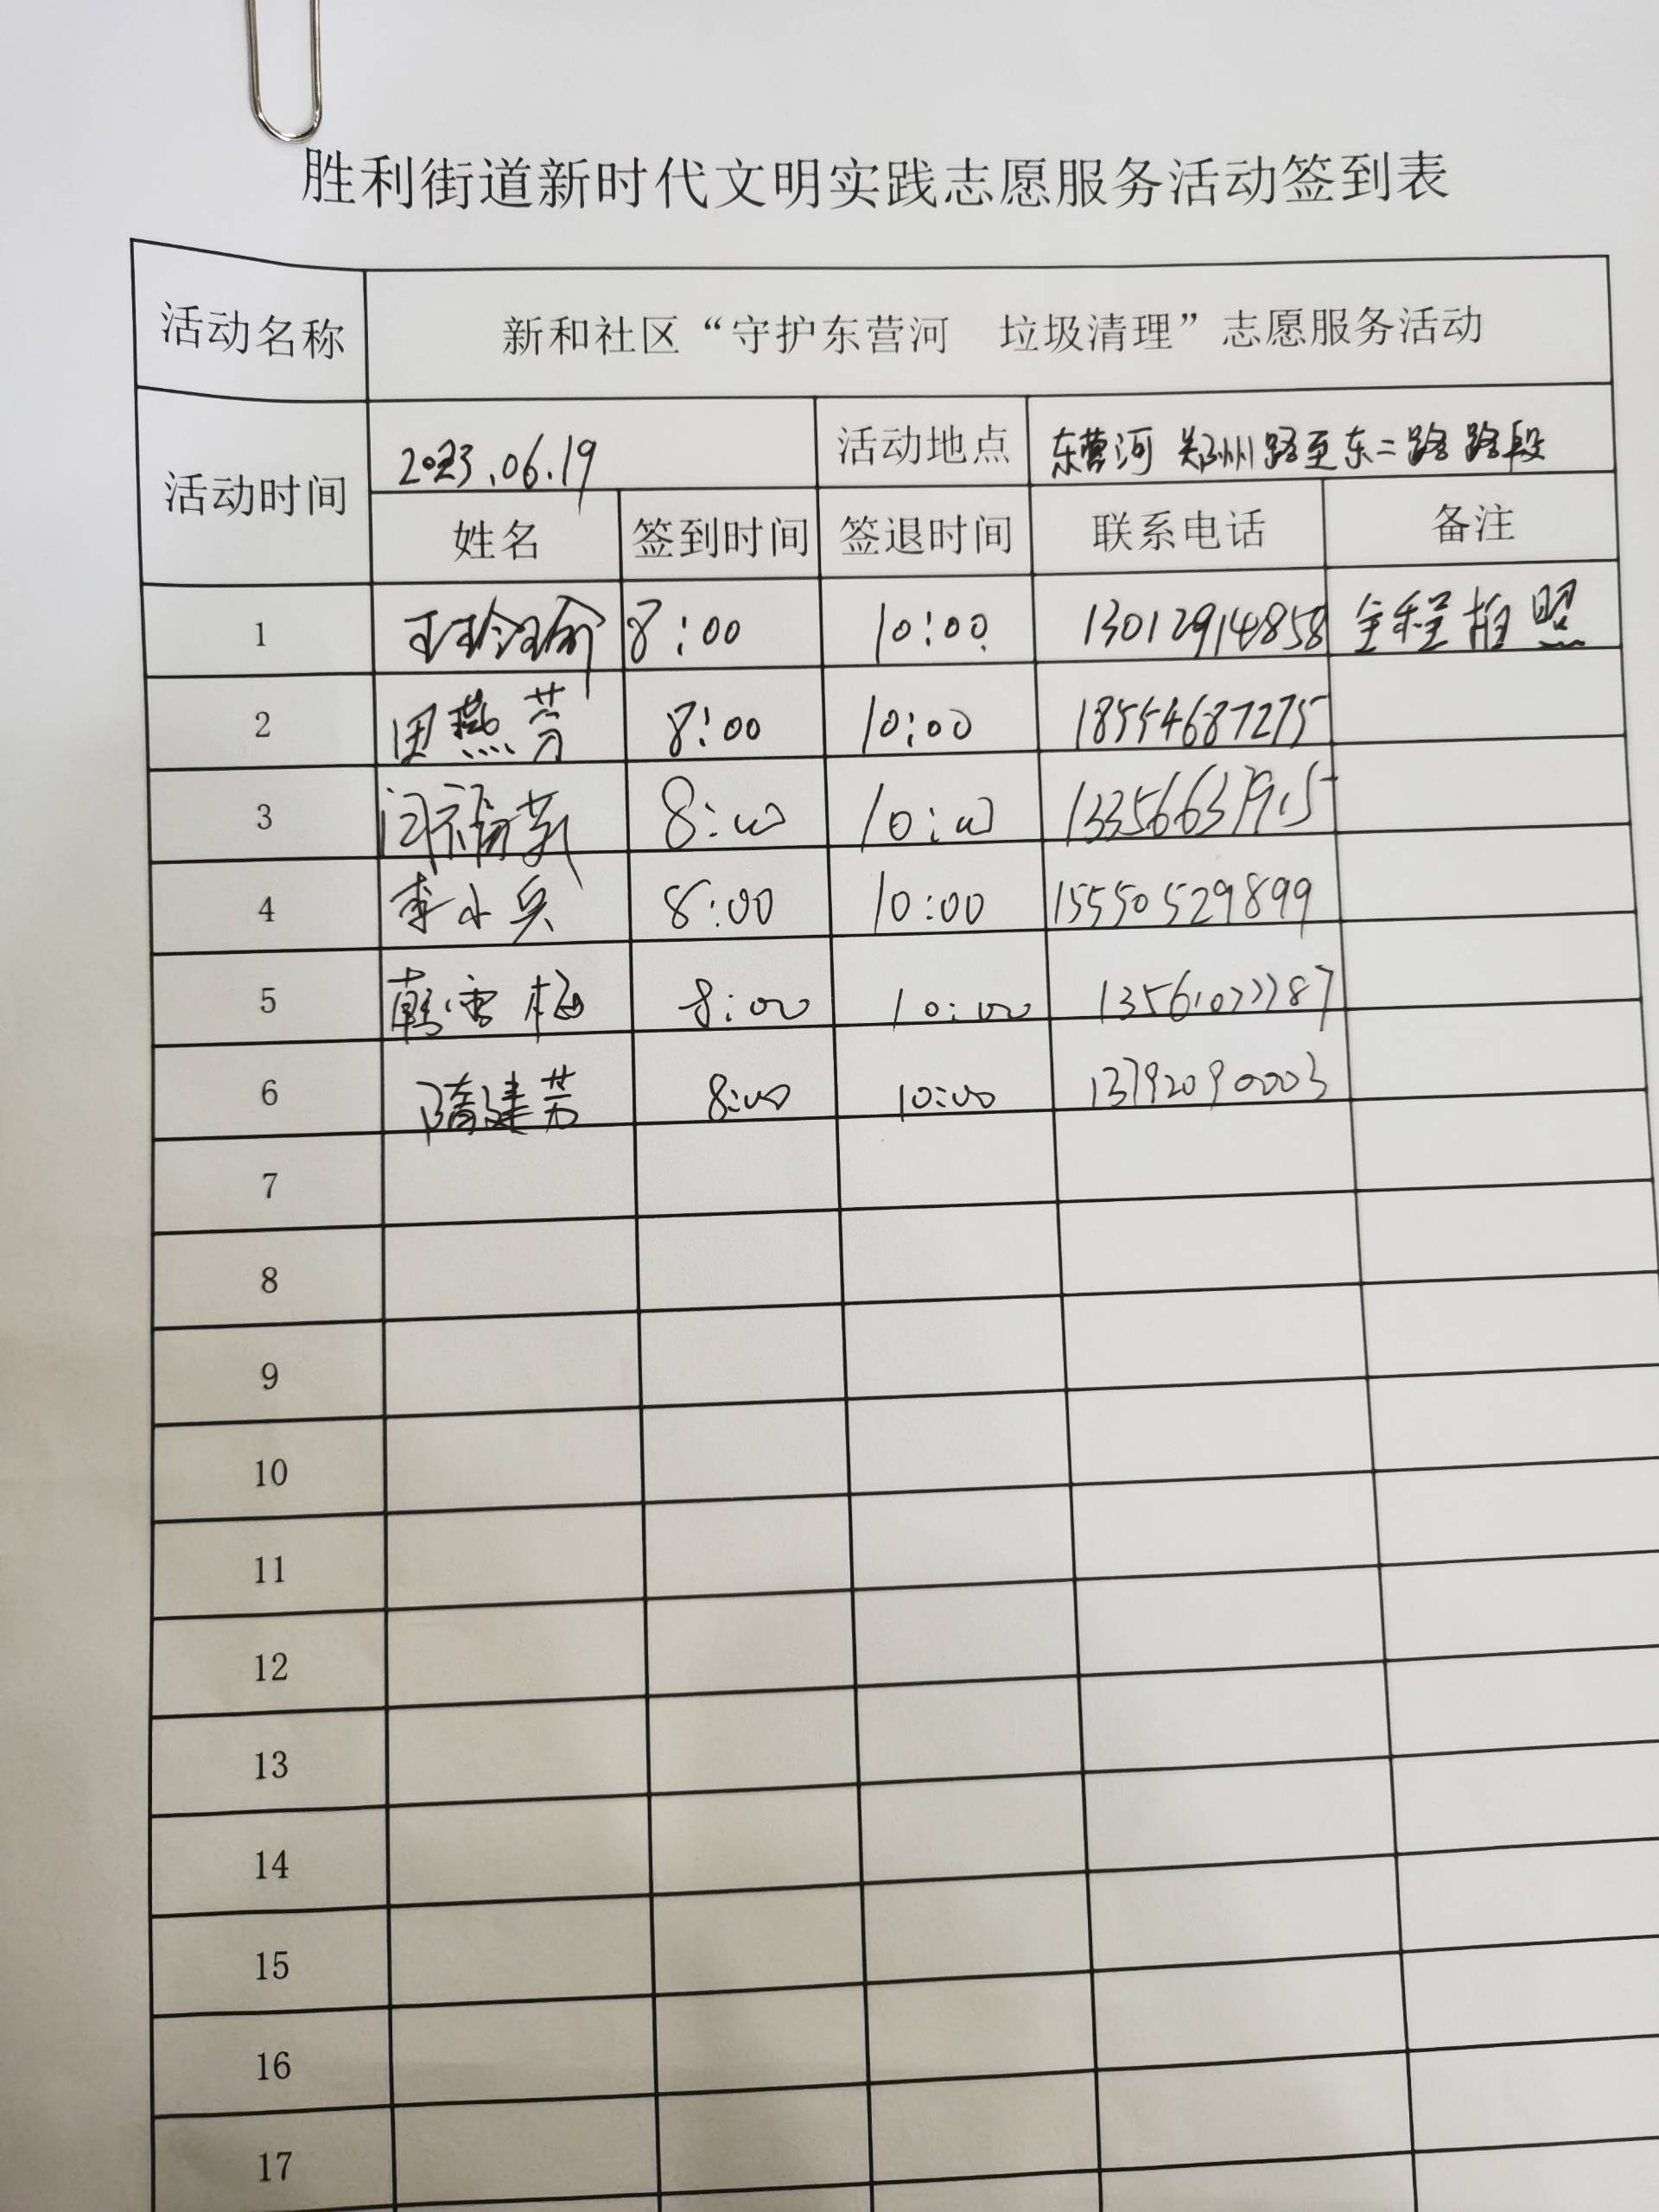 胜利街道新时代文明实践志愿服务活动签到表
活动名称 新和社区“守护东营河 垃圾清理”志愿服务活动
活动时间 2023.06.19 活动地点 东营河 郑州路至东二路路段
姓名 签到时间 签退时间 联系电话 备注
1 王玲瑜 8:00 10:00 13012914858 全程拍照
2 田燕芳 8:00 10:00 18554687275
3 8:00 10:00 13356637915
4 李小兵 8:00 10:00 15550529899
5 韩雪梅 8:00 10:00
6 隋建芳 8:00 10:00 13792090003
7
8
9
10
11
12
13
14
15
16
17